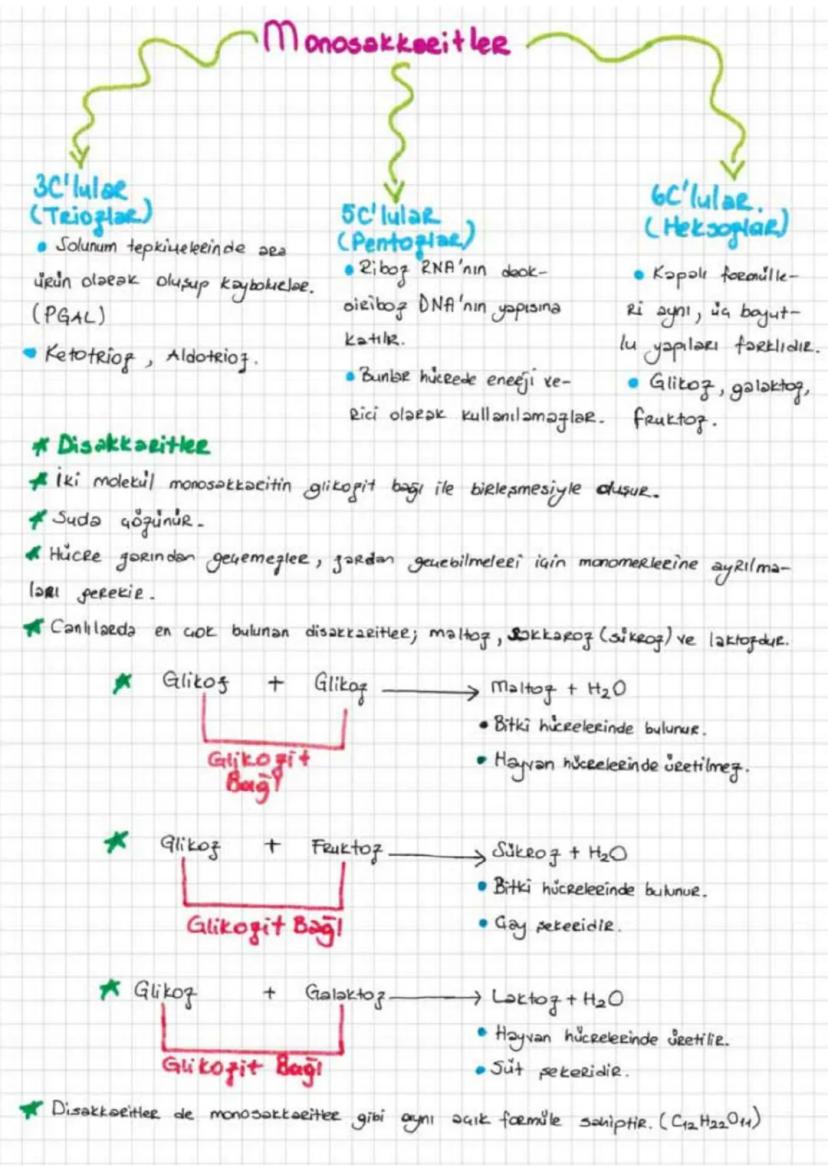 Monosakkaritler
3C'lular
(Triozlar)
• Solunum tepkimelerinde ara
ürün olarak oluşup kaybolurlar.
(PGAL)
• Ketotrioz, Aldotrioz.
5C'lular
(Pentozlar)
• Riboz RNA'nın deok-
siriboz DNA'nın yapısına
katılır.
• Bunlar hücrede enerji ve-
rici olarak kullanılamazlar.
6C'lular.
(Heksozlar)
• Kapalı formülle-
ri aynı, üç boyut-
lu yapıları farklıdır.
• Glikoz, galaktoz,
fruktoz.
* Disakkaritler
* İki molekül monosakkaritin glikozit bağı ile birleşmesiyle oluşur.
* Suda çözünür.
* Hücre zarından geçemezler, zardan geçebilmeleri için monomerlerine ayrılma-
ları gerekir.
* Canlılarda en çok bulunan disakkaritler; maltoz, sakkaroz (sükroz) ve laktozdur.
* Glikoz + Glikoz → Maltoz + H2O
Glikozit
Bağı
• Bitki hücrelerinde bulunur.
• Hayvan hücrelerinde üretilmez.
* Glikoz + Fruktoz → Sükroz + H2O
Glikozit Bağı
• Bitki hücrelerinde bulunur.
• Çay şekeridir.
* Glikoz + Galaktoz → Laktoz + H2O
Glikozit Bağı
• Hayvan hücrelerinde üretilir.
• Süt şekeridir.
* Disakkaritler de monosakkaritler gibi aynı açık formüle sahiptir. (C12H22O11)